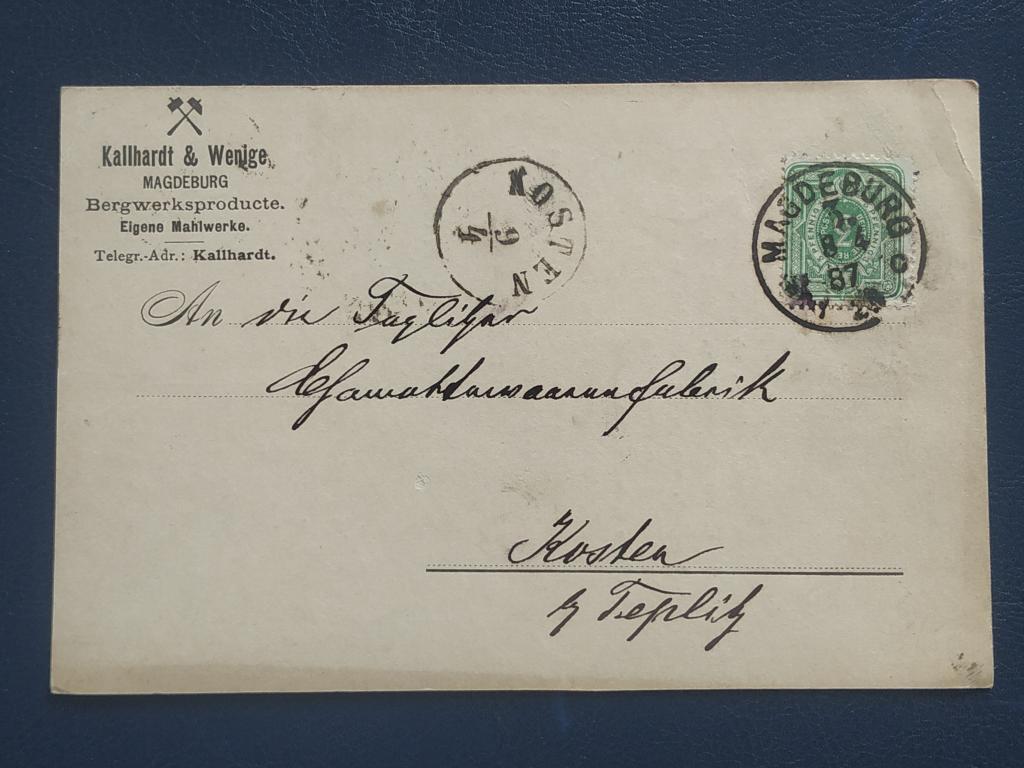 Kallhardt & Wenige
MAGDEBURG
Bergwerksproducte.
Eigene Mahlwerke.
Telegr.-Adr.: Kallhardt.
KOSTEN
9
4
MAGDEBURG
8 4
87
C
An die
Chamottewaarenfabrik
Kosten
Teplitz